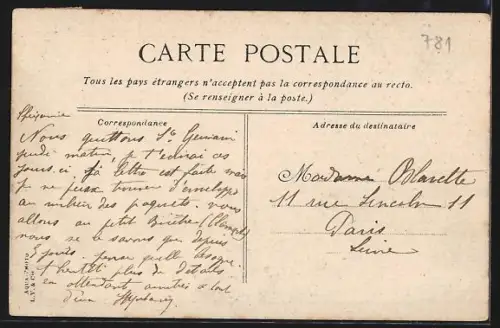 781
CARTE POSTALE
Tous les pays étrangers n'acceptent pas la correspondance au recto.
(Se renseigner à la poste.)
Correspondance
Adresse du destinataire
Nous quittons St Germain
jeudi matin, je t'écrirai ces
jours-ci la lettre est faite mais
je ne peux trouver d'enveloppe
au milieu des paquets. nous
allons au petit
nous ne le savons que depuis
3 jours.
bientôt plus de détails
en attendant, amitiés à tout
Madame Blavette
11 rue Lincoln 11
Paris
Seine
AQUA-PHOTO
L.V. & Cie